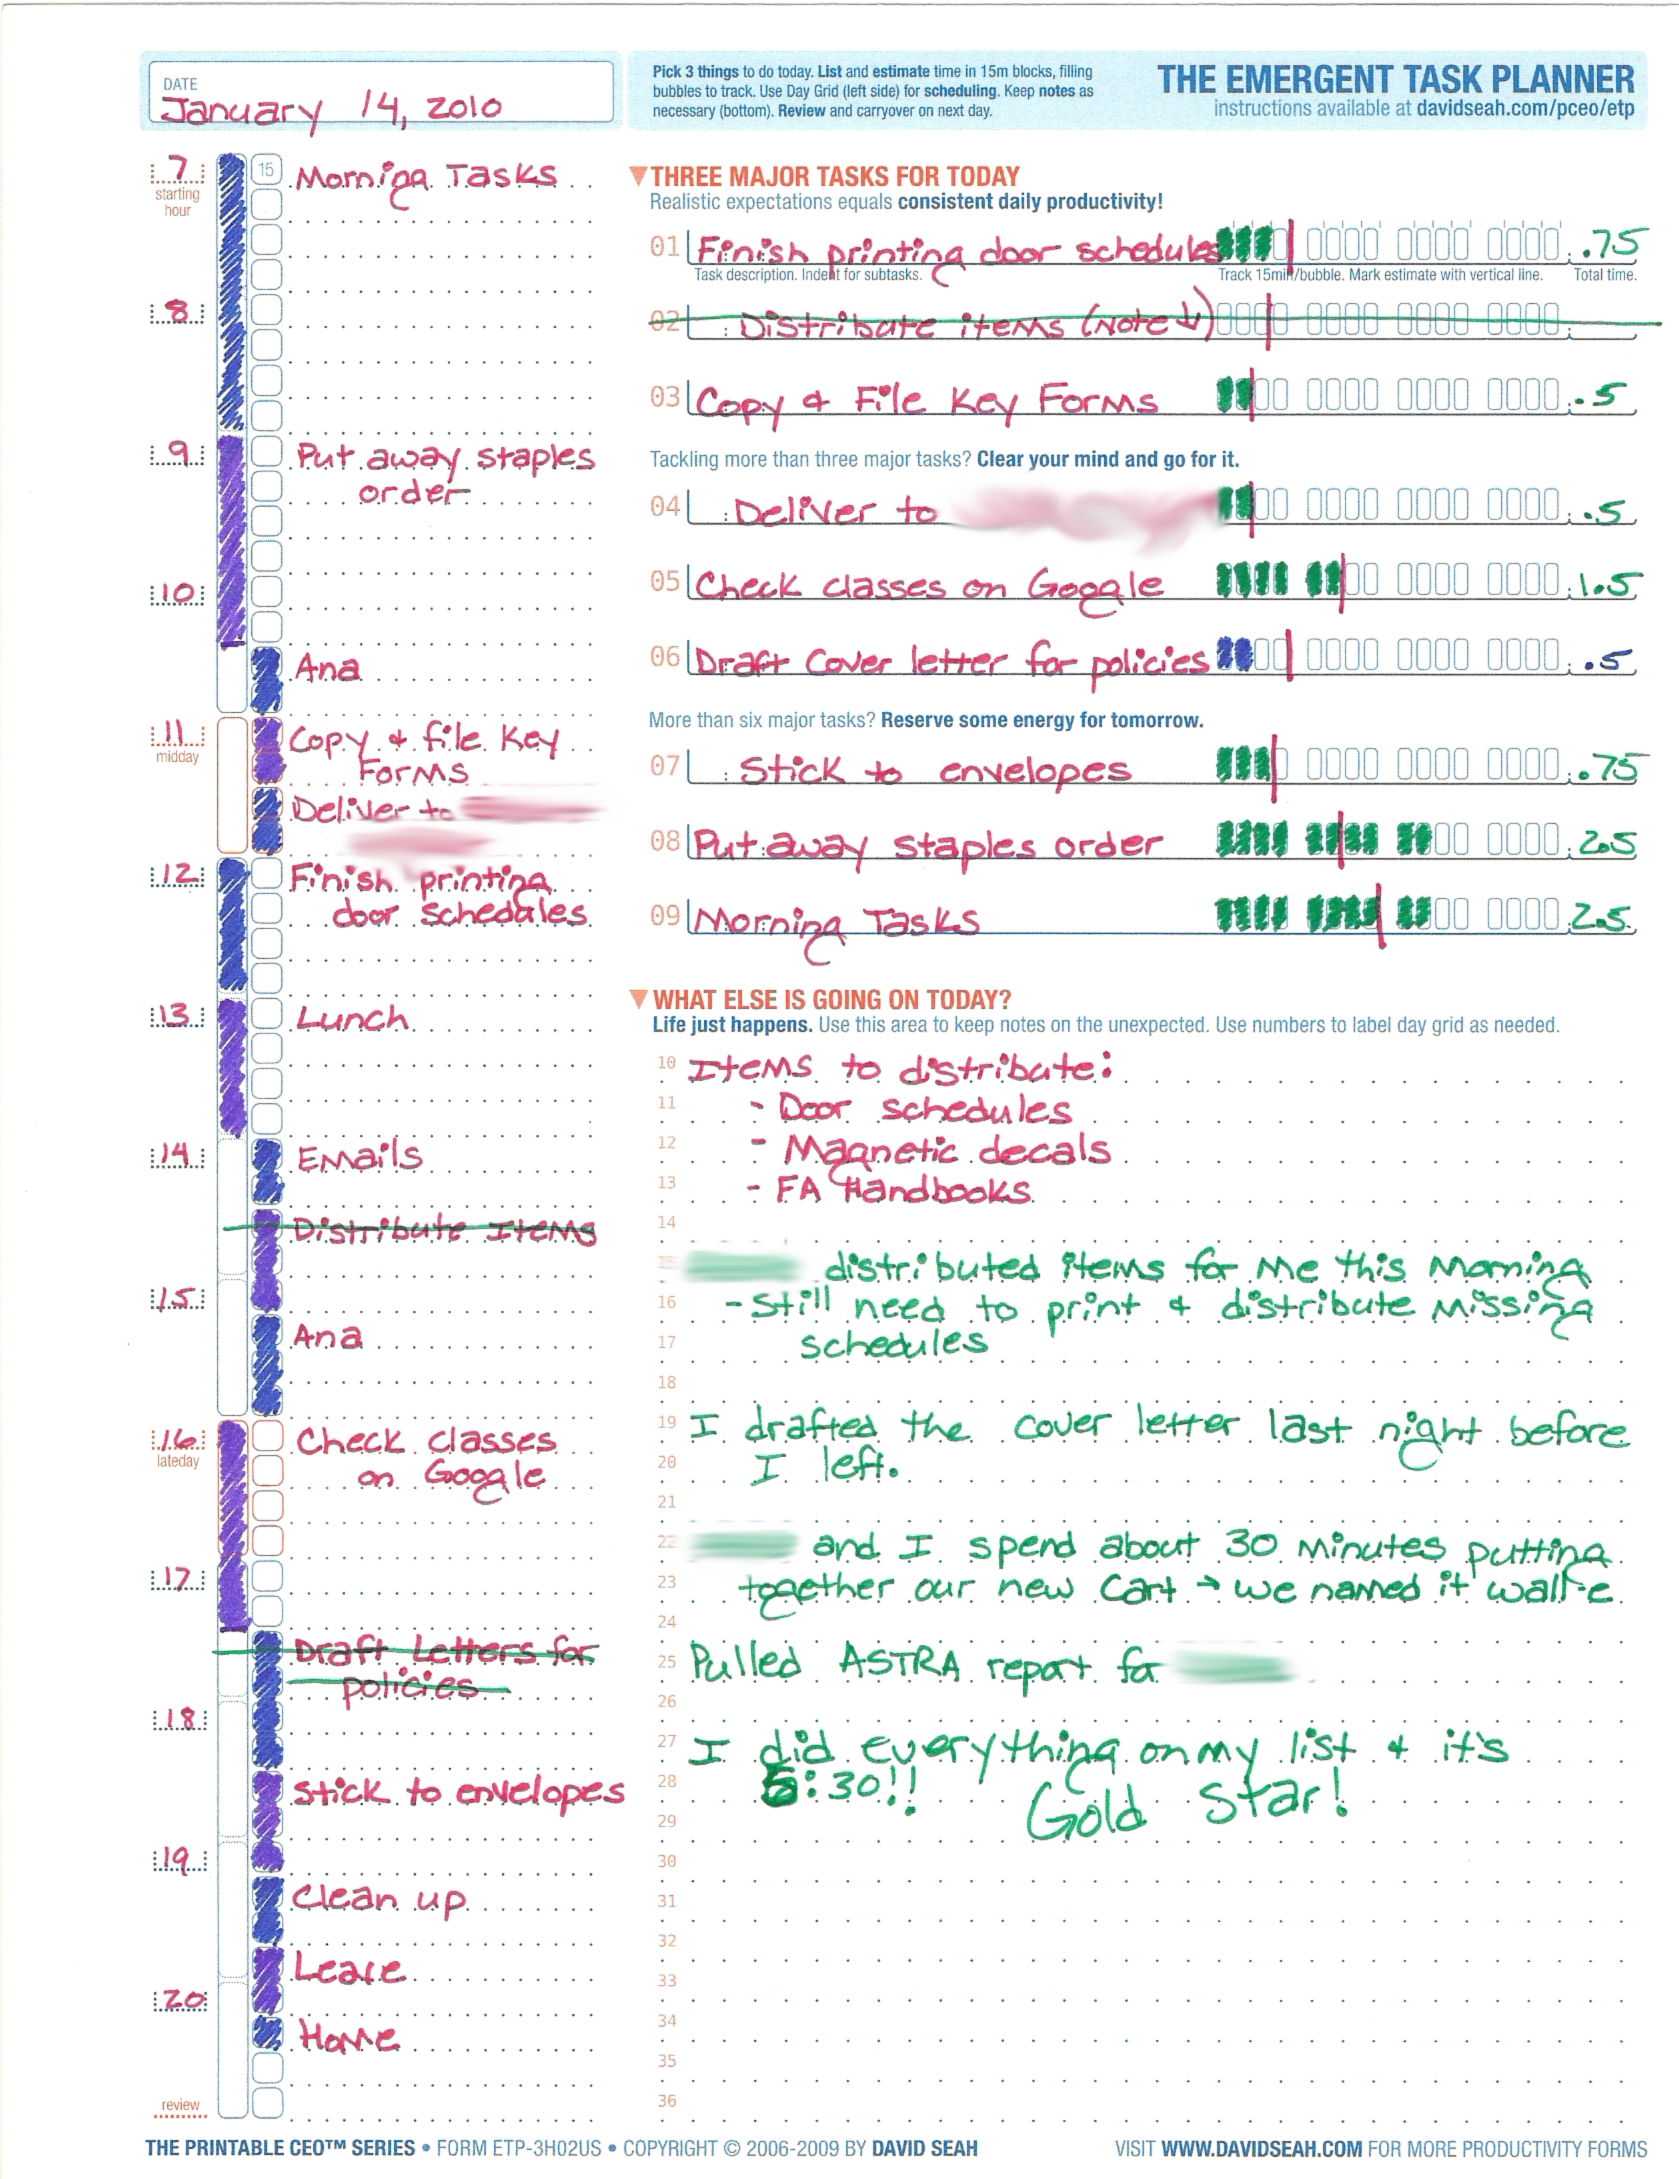 DATE
January 14, 2010
Pick 3 things to do today. List and estimate time in 15m blocks, filling
bubbles to track. Use Day Grid (left side) for scheduling. Keep notes as
necessary (bottom). Review and carryover on next day.
THE EMERGENT TASK PLANNER
instructions available at davidseah.com/pceo/etp
7
starting
hour
15
Morning Tasks
8
9
Put away staples
order
10
Ana
11
midday
Copy & file Key
Forms
Deliver to
12
Finish printing
door schedules
13
Lunch
14
Emails
Distribute Items
15
Ana
16
lateday
Check classes
on Google
17
Draft Letters for
policies
18
Stick to envelopes
19
Clean up
Leave
20
Home
review
THREE MAJOR TASKS FOR TODAY
Realistic expectations equals consistent daily productivity!
01 Finish printing door schedules .75
Task description. Indent for subtasks. Track 15min/bubble. Mark estimate with vertical line. Total time.
02 Distribute items (Note ↓)
03 Copy & File Key Forms .5
Tackling more than three major tasks? Clear your mind and go for it.
04 Deliver to .5
05 Check classes on Google 1.5
06 Draft Cover letter for policies .5
More than six major tasks? Reserve some energy for tomorrow.
07 Stick to envelopes .75
08 Put away staples order 2.5
09 Morning Tasks 2.5
WHAT ELSE IS GOING ON TODAY?
Life just happens. Use this area to keep notes on the unexpected. Use numbers to label day grid as needed.
10 Items to distribute:
11 - Door schedules
12 - Magnetic decals
13 - FA Handbooks
14
15 distributed items for me this morning
16 - Still need to print & distribute missing
17 schedules
18
19 I drafted the cover letter last night before
20 I left.
21
22 and I spend about 30 minutes putting
23 together our new cart → we named it wall-e
24
25 Pulled ASTRA report for
26
27 I did everything on my list & it's
28 5:30!! Gold Star!
29
30
31
32
33
34
35
36
THE PRINTABLE CEO™ SERIES • FORM ETP-3H02US • COPYRIGHT © 2006-2009 BY DAVID SEAH
VISIT WWW.DAVIDSEAH.COM FOR MORE PRODUCTIVITY FORMS